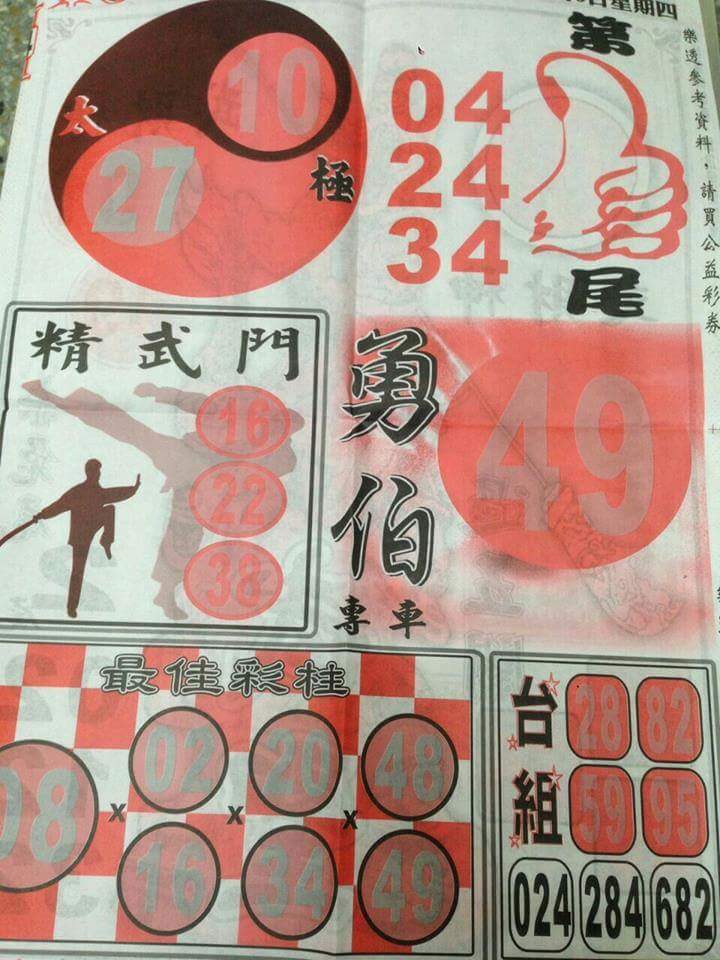 日星期四
樂透參考資料，請買公益彩券
太極
10
27
第尾
04
24
34
精武門
16
22
38
勇伯
專車
49
最佳彩柱
08 x 02 x 20 x 48
16 34 49
台組
28 82
59 95
024 284 682